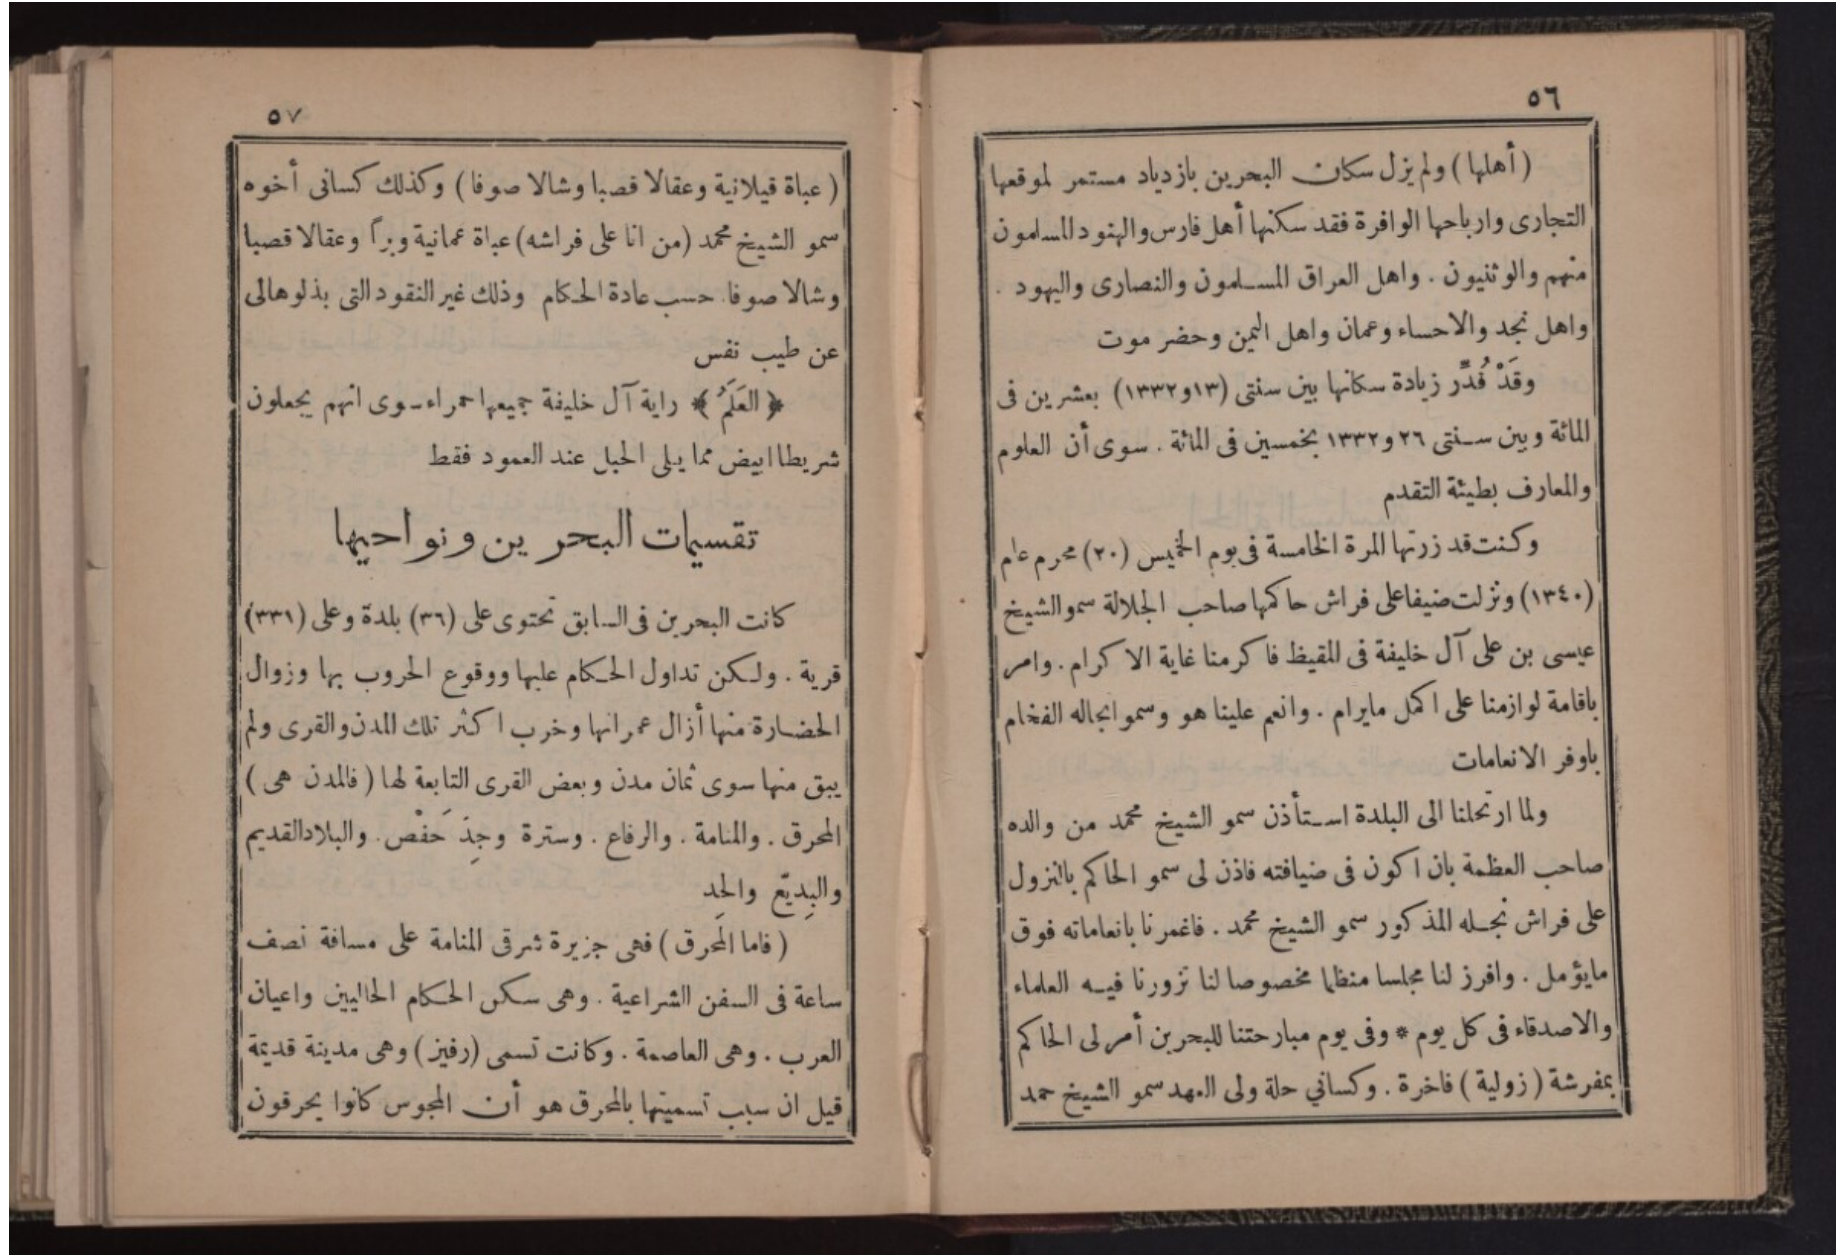 ٥٦
(أهلها) ولم يزل سكان البحرين بازدياد مستمر لموقعها
التجارى وارباحها الوافرة فقد سكنها أهل فارس والهنود المسلمون
منهم والوثنيون . واهل العراق المسلمون والنصارى واليهود .
واهل نجد والاحساء وعمان واهل اليمن وحضر موت
وقَدْ قُدِّر زيادة سكانها بين سنتى (١٣و١٣٣٢) بعشرين فى
المائة وبين سنتى ٢٦ و١٣٣٢ بخمسين فى المائة . سوى أن العلوم
والمعارف بطيئة التقدم
وكنت قد زرتها المرة الخامسة فى يوم الخميس (٢٠) محرم عام
(١٣٤٠) ونزلت ضيفا على فراش حاكمها صاحب الجلالة سمو الشيخ
عيسى بن على آل خليفة فى المقيظ فاكرمنا غاية الاكرام . وامر
باقامة لوازمنا على اكمل مايرام . وانعم علينا هو وسمو انجاله الفخام
باوفر الانعامات
ولما ارتحلنا الى البلدة استأذن سمو الشيخ محمد من والده
صاحب العظمة بان اكون فى ضيافته فاذن لى سمو الحاكم بالنزول
على فراش نجله المذكور سمو الشيخ محمد . فاغمرنا بانعاماته فوق
مايؤمل . وافرز لنا مجلسا منظما مخصوصا لنا تزورنا فيه العلماء
والاصدقاء فى كل يوم * وفى يوم مبارحتنا للبحرين أمر لى الحاكم
بمفرشة (زولية) فاخرة . وكساني حلة ولى العهد سمو الشيخ حمد
٥٧
(عباة قيلانية وعقالا قصبا وشالا صوفا) وكذلك كسانى أخوه
سمو الشيخ محمد (من انا على فراشه) عباة عمانية وبزاً وعقالا قصبا
وشالا صوفا. حسب عادة الحكام وذلك غير النقود التى بذلوها لى
عن طيب نفس
﴿ العَلَمُ ﴾ راية آل خليفة جميعها حمراء سوى انهم يجعلون
شريطا ابيض مما يلى الحبل عند العمود فقط
تقسيمات البحرين ونواحيها
كانت البحرين فى السابق تحتوى على (٣٦) بلدة وعلى (٣٣١)
قرية . ولكن تداول الحكام عليها ووقوع الحروب بها وزوال
الحضارة منها أزال عمرانها وخرب اكثر تلك المدن والقرى ولم
يبق منها سوى ثمان مدن وبعض القرى التابعة لها (فالمدن هى)
المحرق . والمنامة . والرفاع . وسترة وجِدّ حَفْص . والبلاد القديم
والبِديّع والحِد
(فاما المحرق) فهى جزيرة شرقى المنامة على مسافة نصف
ساعة فى السفن الشراعية . وهى سكن الحكام الحاليين واعيان
العرب . وهى العاصمة . وكانت تسمى (رفيز) وهى مدينة قديمة
قيل ان سبب تسميتها بالمحرق هو أن المجوس كانوا يحرقون